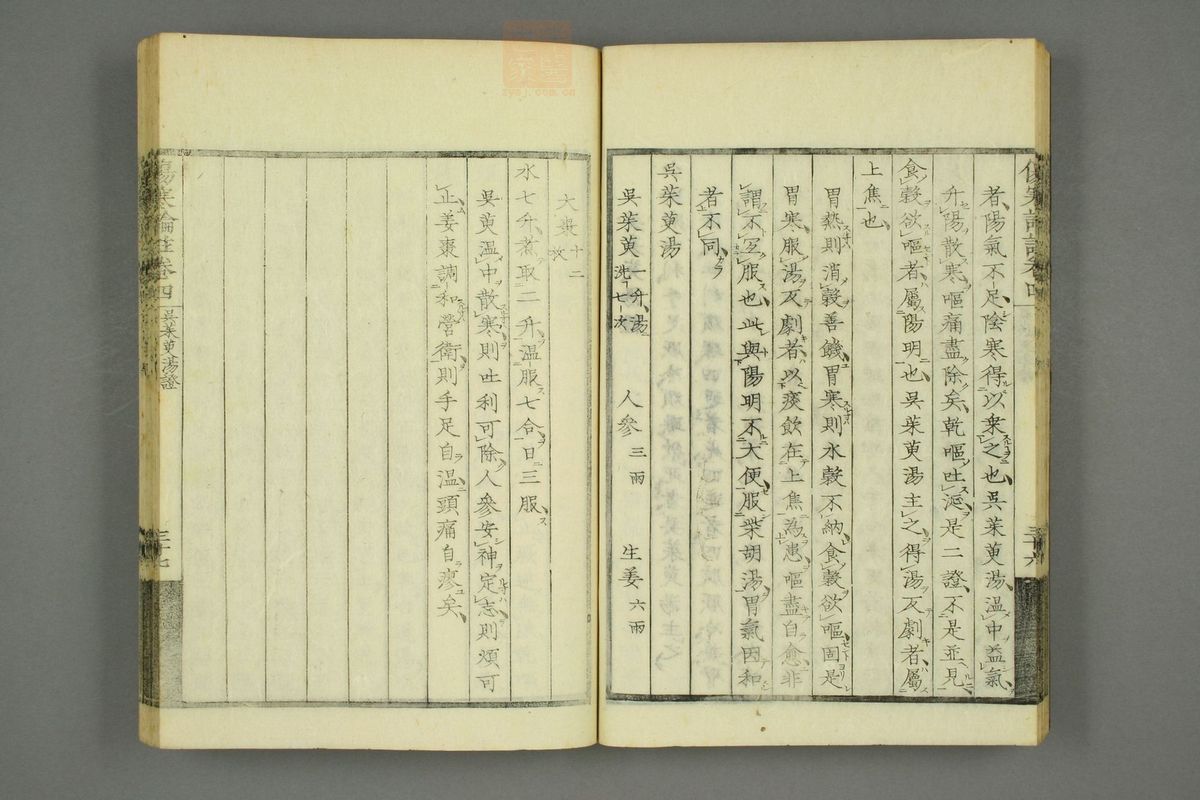 者陽氣不足陰寒得以乘之也吳茱萸湯溫中益氣
升陽散寒嘔痛盡除矣乾嘔吐涎是二證不是並見
食穀欲嘔者屬陽明也吳茱萸湯主之得湯反劇者屬
上焦也
胃熱則消穀善饑胃寒則水穀不納食穀欲嘔固是
胃寒服湯反劇者以痰飲在上焦為患嘔盡自愈非
謂不宜服也此與陽明不大便服柴胡湯胃氣因和
者不同
吳茱萸湯
吳茱萸一升湯洗七次 人參三兩 生姜六兩
三十六
大棗十二枚
水七升煮取二升溫服七合日三服
吳萸溫中散寒則吐利可除人參安神定志則煩可
止姜棗調和營衛則手足自溫頭痛自瘳矣
傷寒論註卷四 吳茱萸湯證
三十七